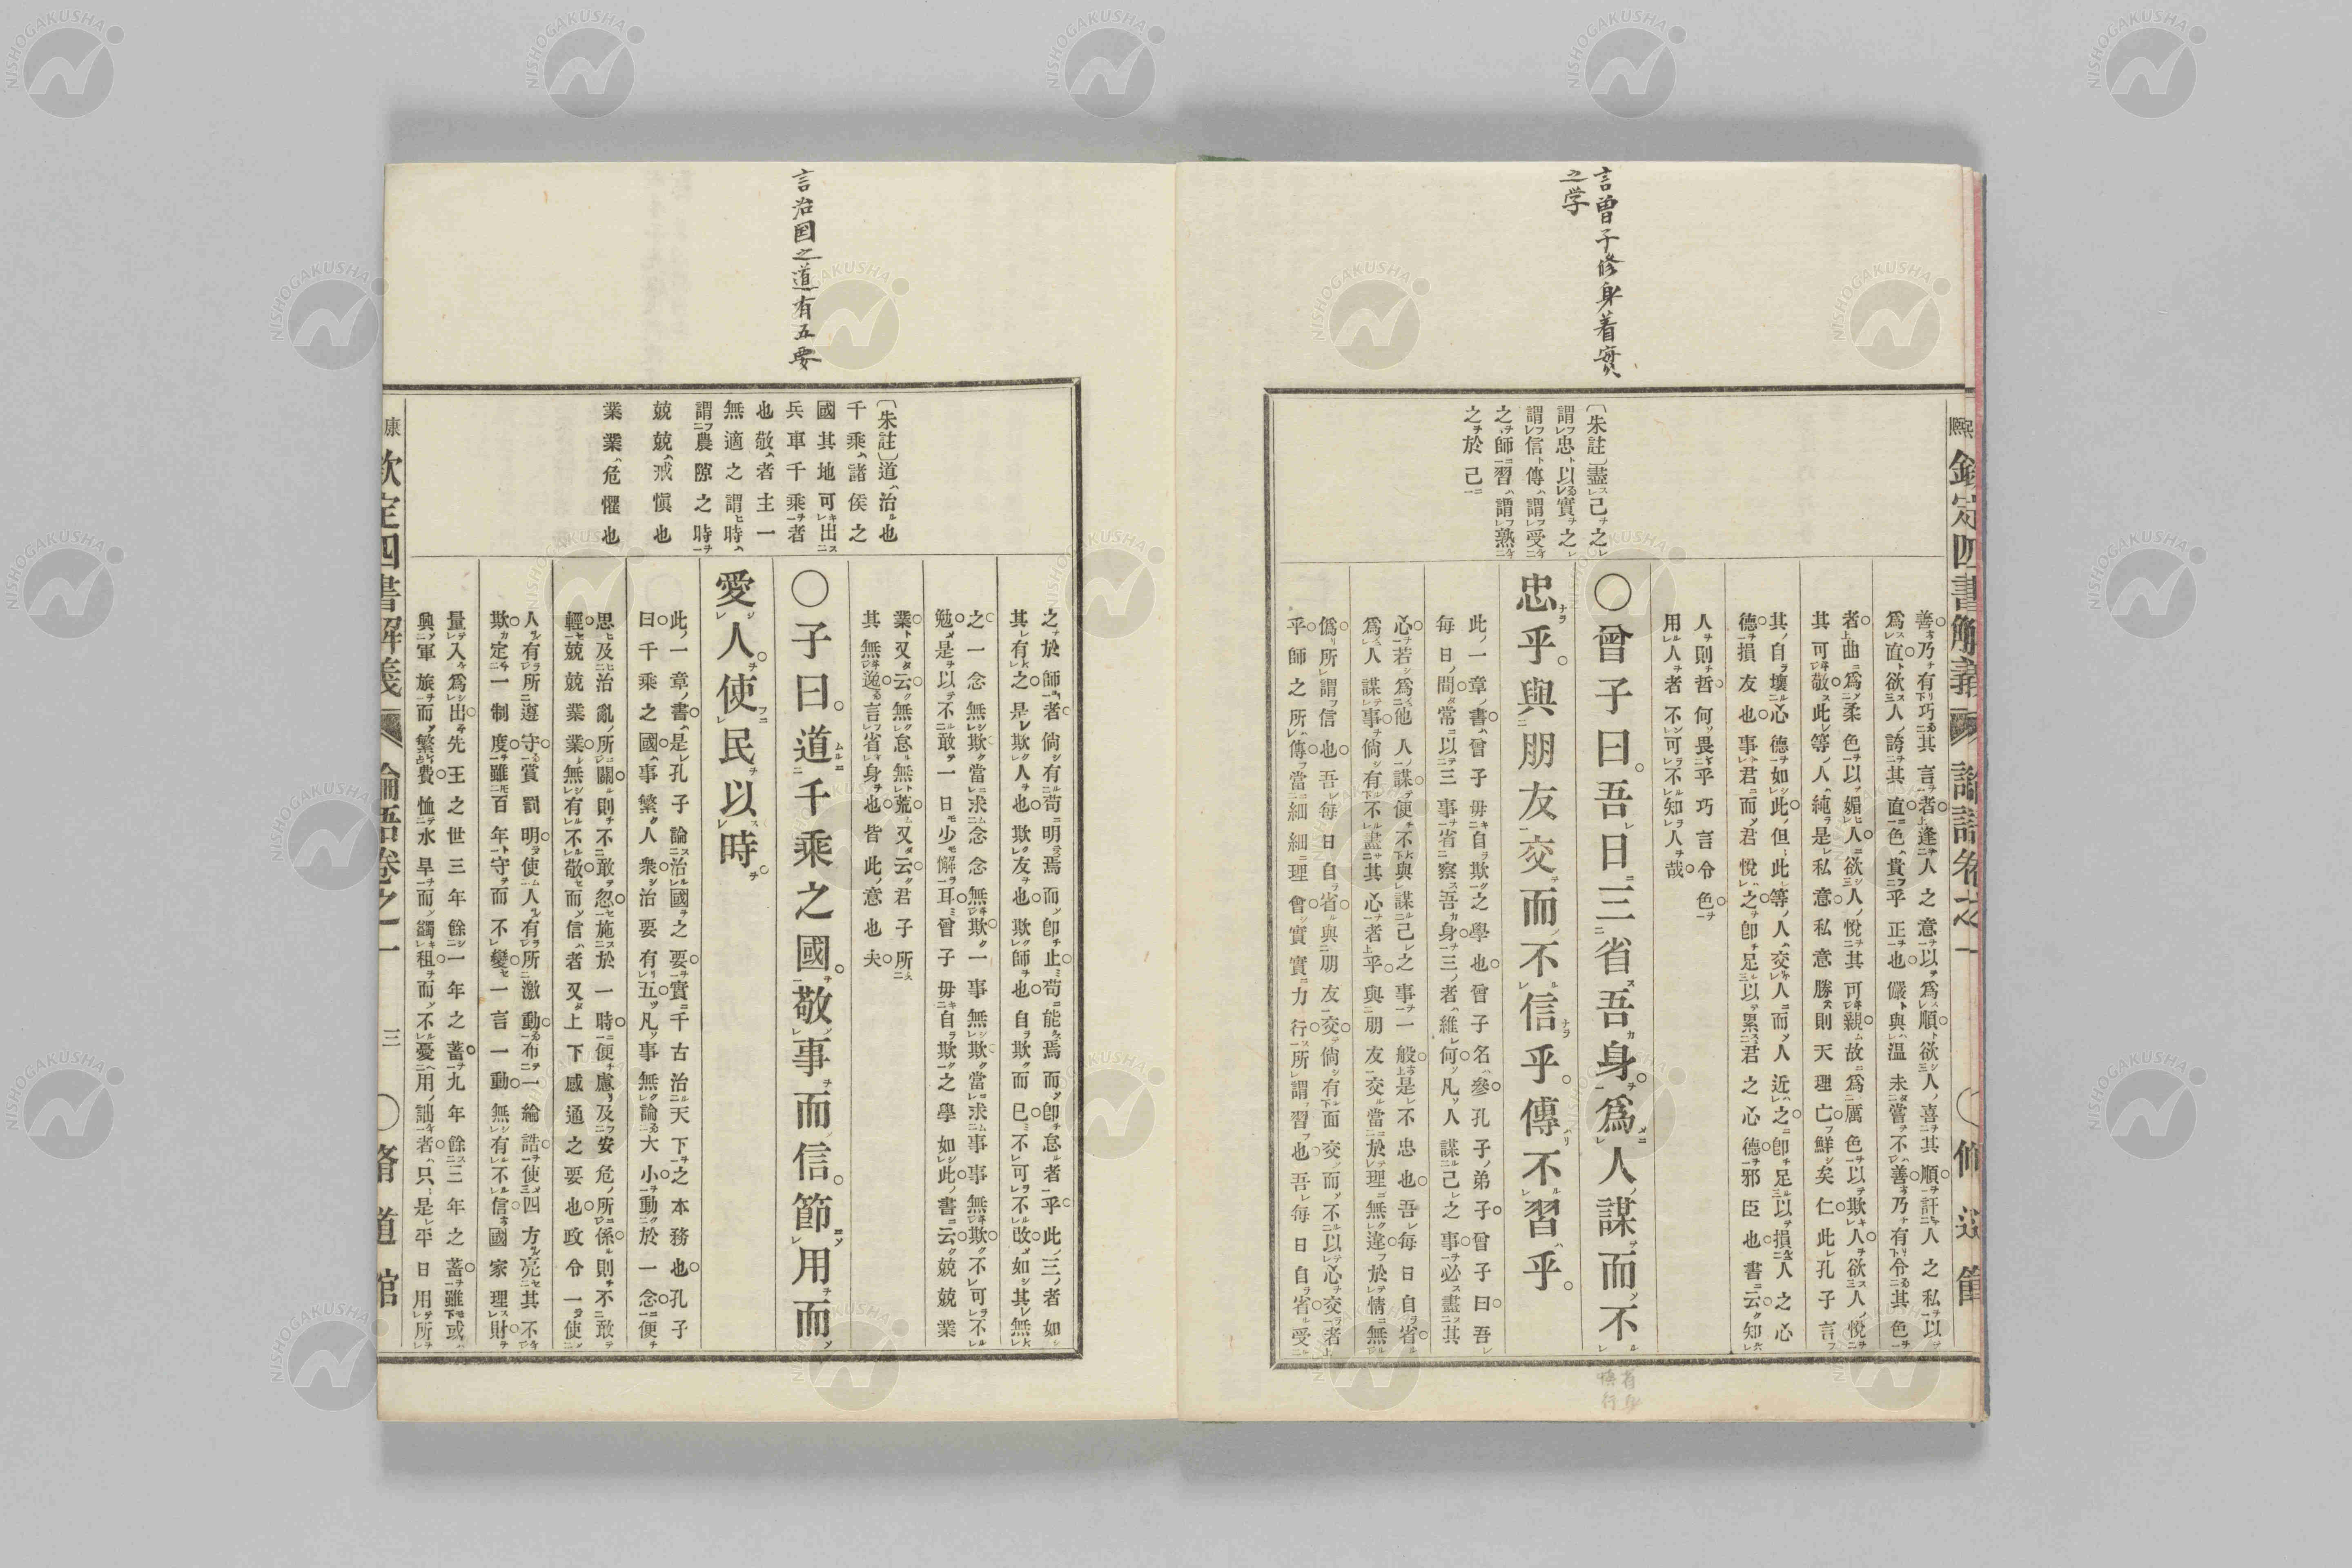 言曽子修身着實
之学
〔朱註〕盡己之
謂忠以實之
謂信傳謂受
之師習謂熟
之於己
善乃有巧其言者逢人之意以爲順欲人喜其順訐人之私以
爲直欲人誇其直色貴乎正也儼與温未嘗不善乃有令其色
者曲爲柔色以媚人欲人悅其可親故爲厲色以欺人欲人悅
其可敬此等人純是私意私意勝則天理亡鮮矣仁此孔子言
其自壞心德如此但此等人交人而人近之卽足以損人之心
德損友也事君而君悅之卽足以累君之心德邪臣也書云知
人則哲何畏乎巧言令色
用人者不可不知人哉
〇曾子曰吾日三省吾身爲人謀而不
忠乎與朋友交而不信乎傳不習乎
此一章書曾子毋自欺之學也曾子名參孔子弟子曾子曰吾
每日間常以三事省察吾身三者維何凡人謀己之事必盡其
心若爲他人謀便不與謀己之事一般是不忠也吾每日自省
爲人謀事倘有不盡其心者乎與朋友交當於理無違於情無
僞所謂信也吾每日自省與朋友交倘有面交而不以心交者
乎師之所傳當細細理會實實力行所謂習也吾每日自省受
言治国之道有五要
〔朱註〕道治也
千乘諸侯之
國其地可出
兵車千乘者
也敬者主一
無適之謂時
謂農隙之時
兢兢戒愼也
業業危懼也
之於師者倘有苟明焉而卽止苟能焉而卽怠者乎此三者如
其有之是欺人也欺友也欺師也自欺而已不可不改如其無
之一念無欺當求念念無欺一事無欺當求事事無欺不可不
勉是以不敢一日少懈耳曾子毋自欺之學如此書云兢兢業
業又云無怠無荒又云君子所
其無逸言省身也皆此意也夫
〇子曰道千乘之國敬事而信節用而
愛人使民以時
此一章書是孔子論治國之要實千古治天下之本務也孔子
曰千乘之國事繁人衆治要有五凡事無論大小動於一念便
思及治亂所關則不敢忽施於一時便慮及安危所係則不敢
輕兢兢業業無有不敬而信者又上下感通之要也政令一使
人有所遵守賞罰明使人有所激動布一綸誥使四方亮其不
欺定一制度雖百年守而不變一言一動無有不信國家理財
量入爲出先王之世三年餘一年之蓄九年餘三年之蓄雖或
興軍旅而繁費恤水旱而蠲租而不憂用詘者只是平日用所
欽定四書解義 論語卷之一 三